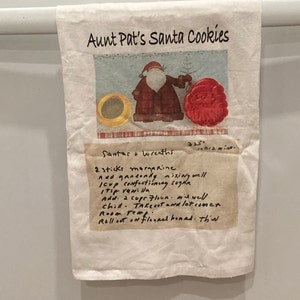 Aunt Pat's Santa Cookies
Santas + Wreaths
325°
2 sticks margarine
Add gradually mixing well
1 cup confectioners sugar
1 tsp vanilla
Add 2 cups flour - mix well
Chill. Take out and let come to
Room Temp.
Roll out on floured board - Thin